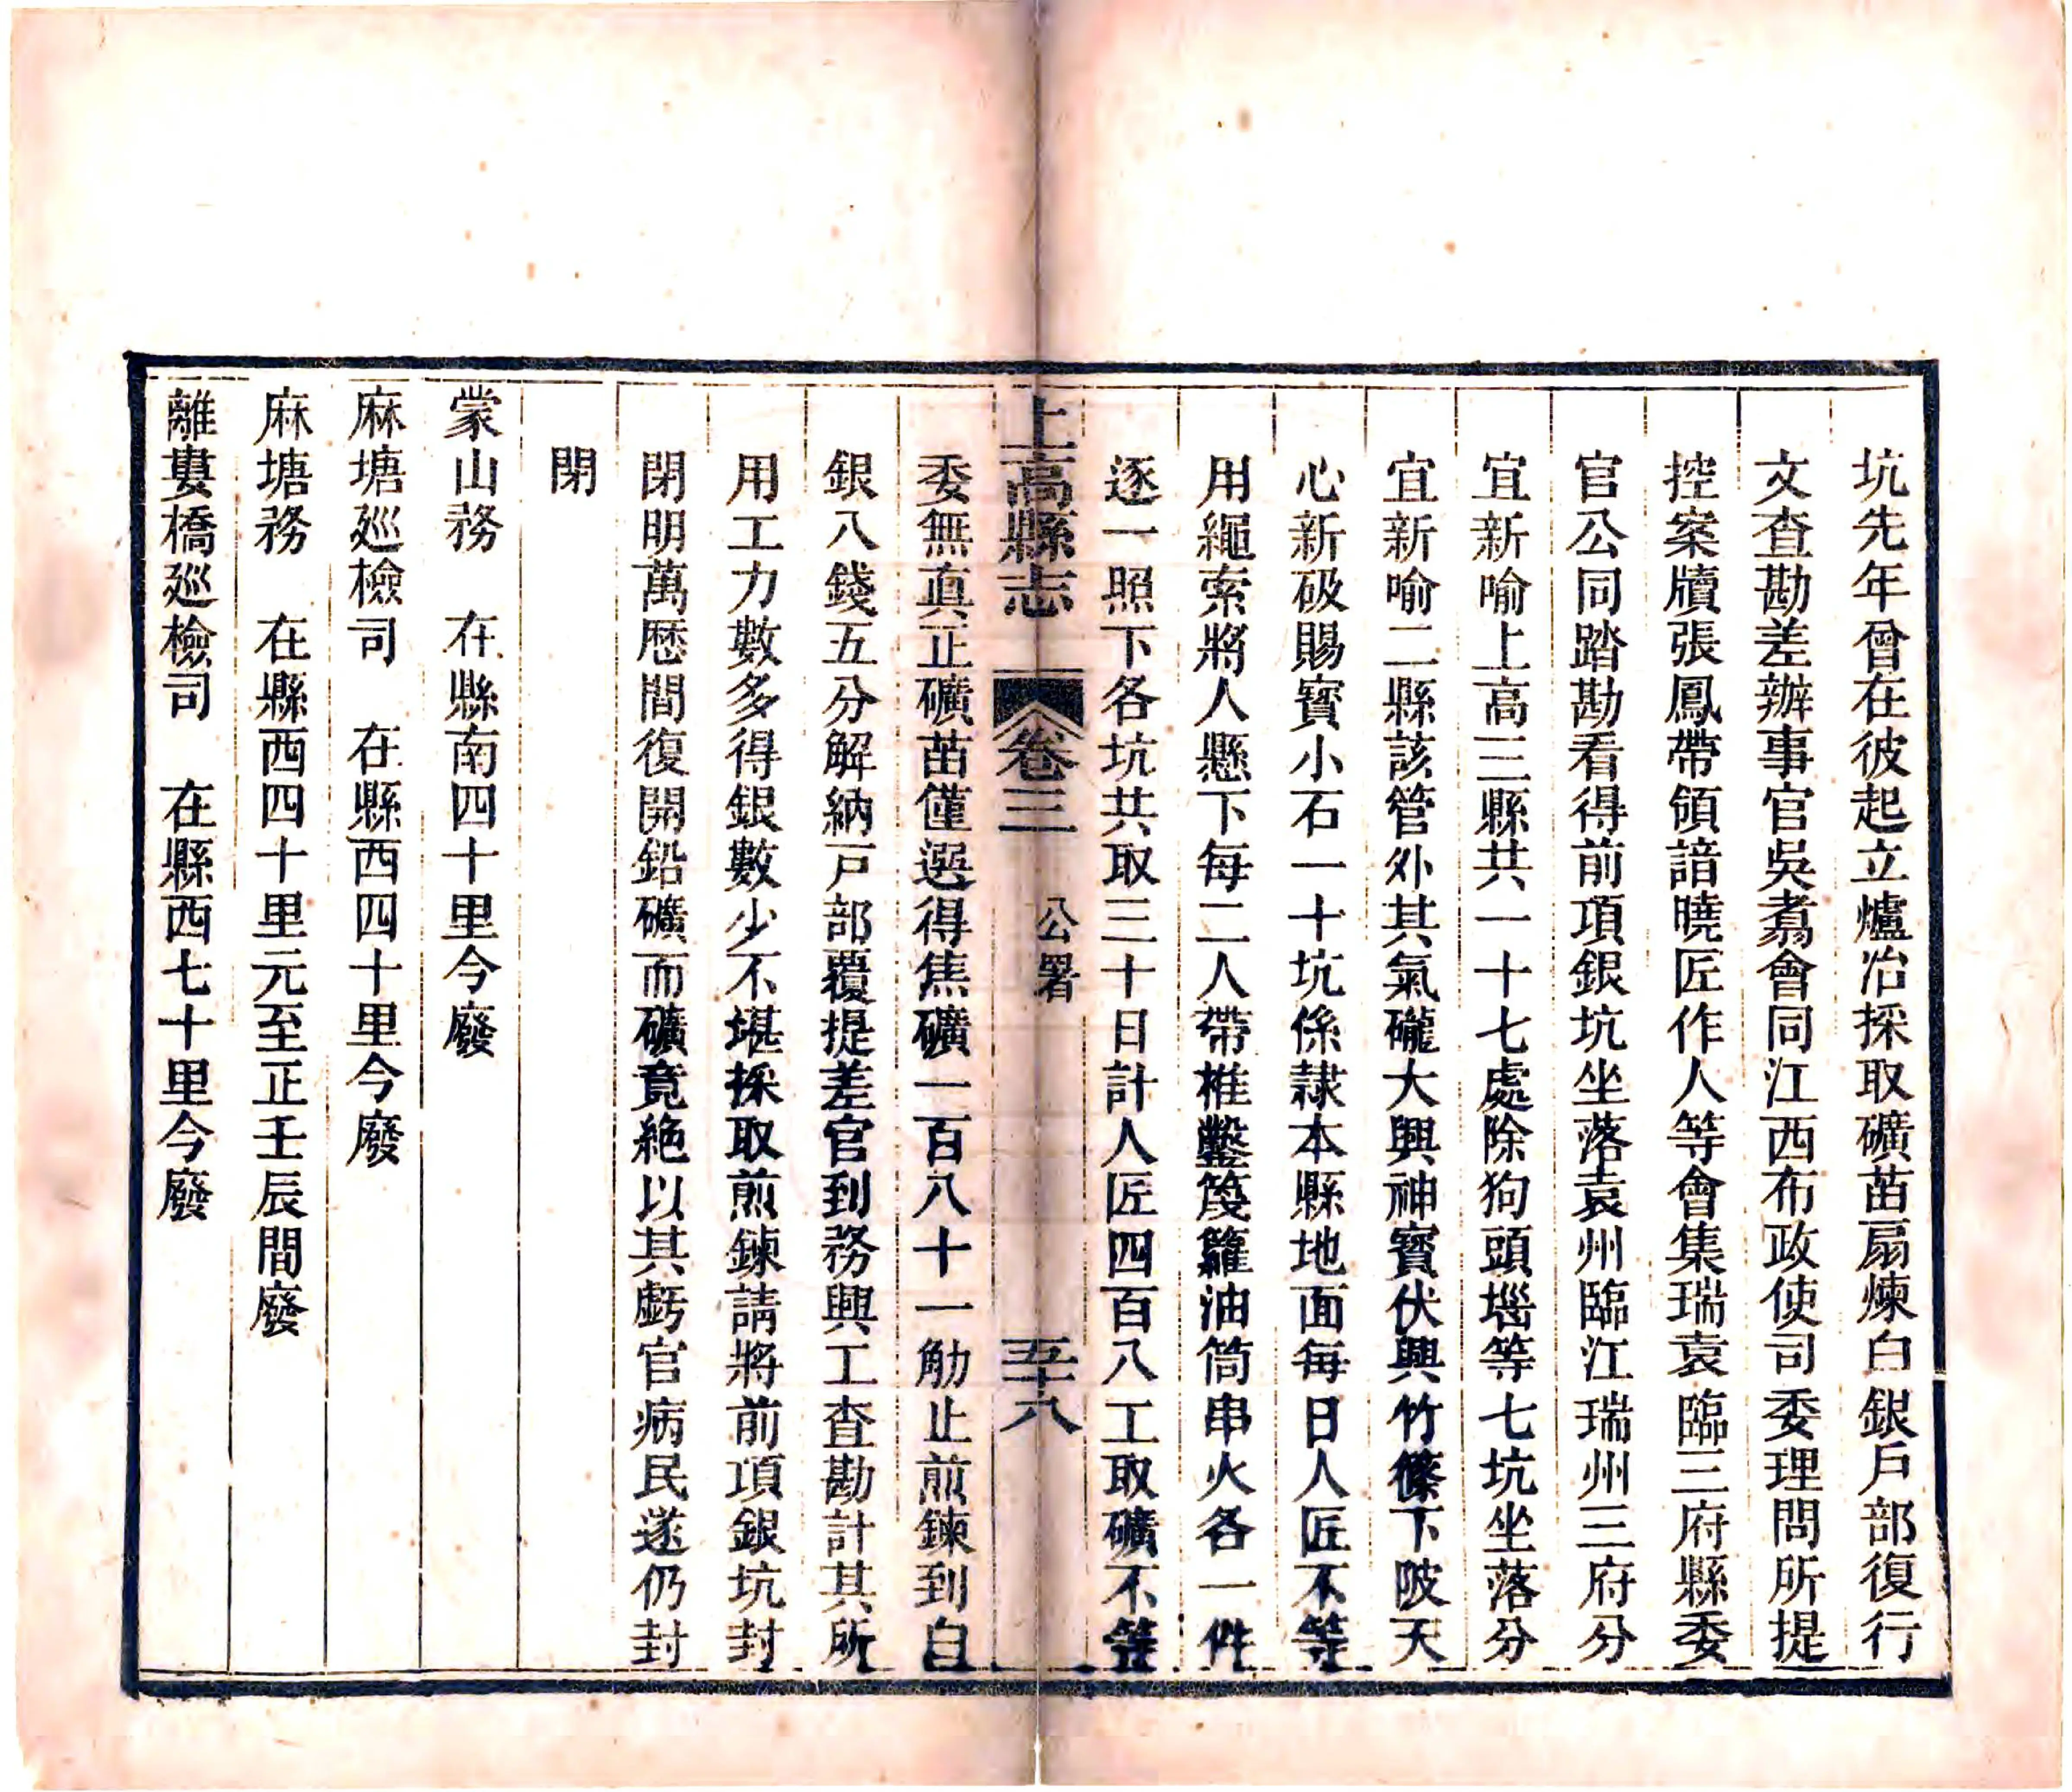 坑先年曾在彼起立爐冶採取礦苗扇煉白銀戶部復行
文查勘差辦事官吳翥會同江西布政使司委理問所提
控案牘張鳳帶領諳曉匠作人等會集瑞袁臨三府縣委
官公同踏勘看得前項銀坑坐落袁州臨江瑞州三府分
宜新喻上高三縣共一十七處除狗頭堖等七坑坐落分
宜新喻二縣該管外其氣礲大興神寶伏興竹篠下陂天
心新砐賜寶小石一十坑係隷本縣地面每日人匠不等
用繩索將人懸下每二人帶椎鑿籧籮油筒串火各一件
逐一照下各坑共取三十日計人匠四百八工取礦不等
上高縣志 卷三 公署 五十八
委無真正礦苗僅選得焦礦一百八十一觔止煎鍊到白
銀八錢五分解納戸部覆提差官到務興工查勘計其所
用工力數多得銀數少不堪採取煎鍊請將前項銀坑封
閉明萬歷間復開鉛礦而礦竟絶以其虧官病民遂仍封
閉
蒙山務 在縣南四十里今廢
麻塘廵檢司 在縣西四十里今廢
麻塘務 在縣西四十里元至正壬辰間廢
離婁橋廵檢司 在縣西七十里今廢